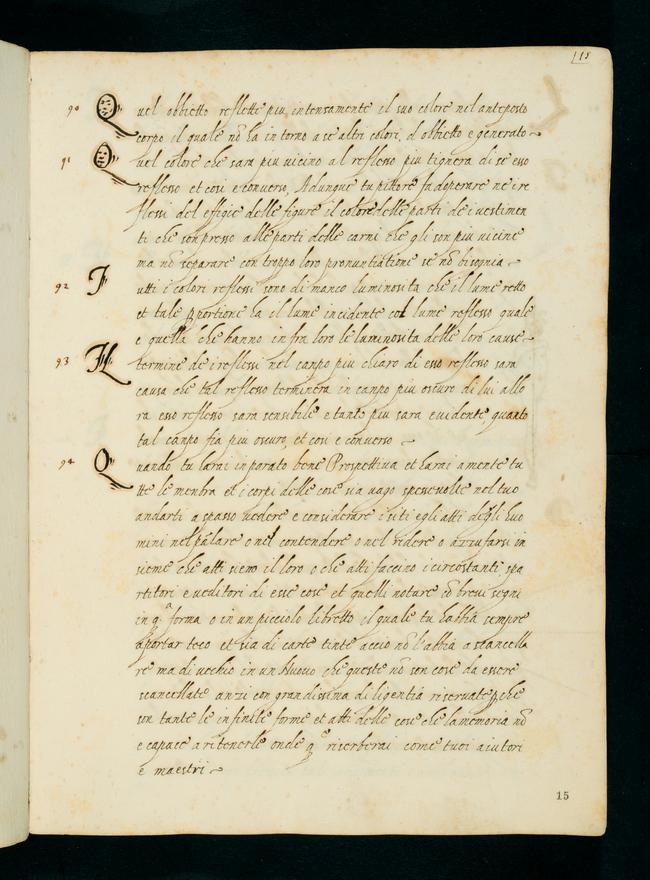 115
90 Quel obbietto reflette piu intensamente il suo colore nel anteposto
corpo il quale nõ ha in torno a se altri colori. d obbietto e generato
91 Quel colore che sara piu vicino al reflesso piu tignera di se esso
reflesso et cosi e converso. Adunque tu pittore fa doperare ne i re
flessi del effigie delle figure il colore delle parti de i vestimen
ti che son presso alle parti delle carni che gli son piu vicine
ma nõ separare con troppo loro pronuntiatione se nõ bisognia
92 Tutti i colori reflessi sono di manco luminosita che il lume retto
et tale pportione ha il lume incidente col lume reflesso quale
e quella che hanno infra loro le luminosita delle loro cause
93 Il termine de i reflessi nel canpo piu chiaro di esso reflesso sara
causa che tal reflesso terminera in canpo piu oscuro di lui allo
ra esso reflesso sara sensibile e tanto piu sara evidente, quanto
tal canpo fia piu oscuro, et cosi e converso
94 Quando tu harai inparato bene Prospettiva et harai a mente tu
tte le menbra et i corpi delle cose sia vago spesse volte nel tuo
andarti a spasso vedere e considerare i siti egli atti degli huo
mini nel palare o nel contendere o nel ridere o azzufarsi in
sieme che atti sieno il loro o che atti faccino i circostanti spa
rtitori e veditori di esse cose et quelli notare cõ brevi segni
in qª forma o in un picciolo libretto il quale tu habbia sempre
aportar teco et sia di carte tinte accio nõ l'abbia a scancella
re ma di vechio in un Nuovo che queste nõ son cose da essere
scancellate anzi con grandissima diligentia riservate pche
son tante le infinite forme et atti delle cose che la memoria nõ
e capace a ritenerle onde qᵉ riserberai come tuoi aiutori
e maestri
15